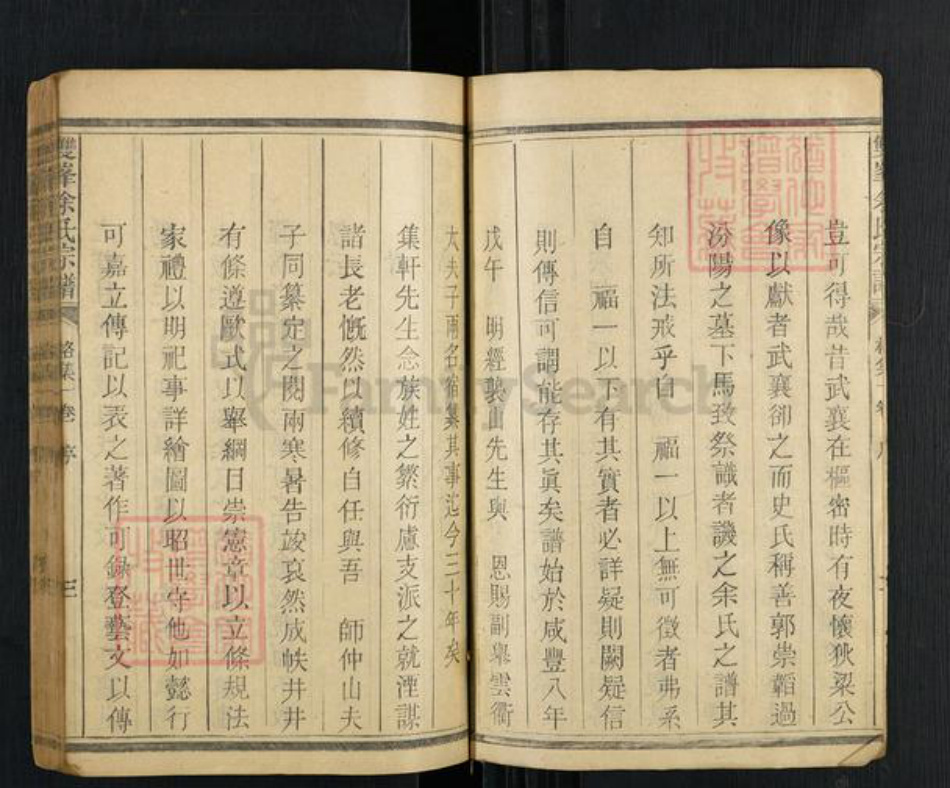 豈可得哉昔武襄在樞密時有夜懷狄梁公
像以獻者武襄卻之而史氏稱善郭崇韜過
汾陽之墓下馬致祭識者譏之余氏之譜其
知所法戒乎自 福一以上無可徵者弗系
自 福一以下有其實者必詳疑則闕疑信
則傳信可謂能存其眞矣譜始於咸豐八年
戊午 明經 先生與 恩賜副舉雲衢
太夫子兩名宿纂其事迄今三十年矣
集軒先生念族姓之繁衍慮支派之就湮謀
諸長老慨然以續修自任與吾 師仲山夫
子同纂定之閱兩寒暑告竣裒然成帙井井
有條遵歐式以舉綱目崇憲章以立條規法
家禮以明祀事詳繪圖以昭世守他如懿行
可嘉立傳記以表之著作可錄登藝文以傳
雙峯余氏宗譜
卷 序 三
FamilySearch